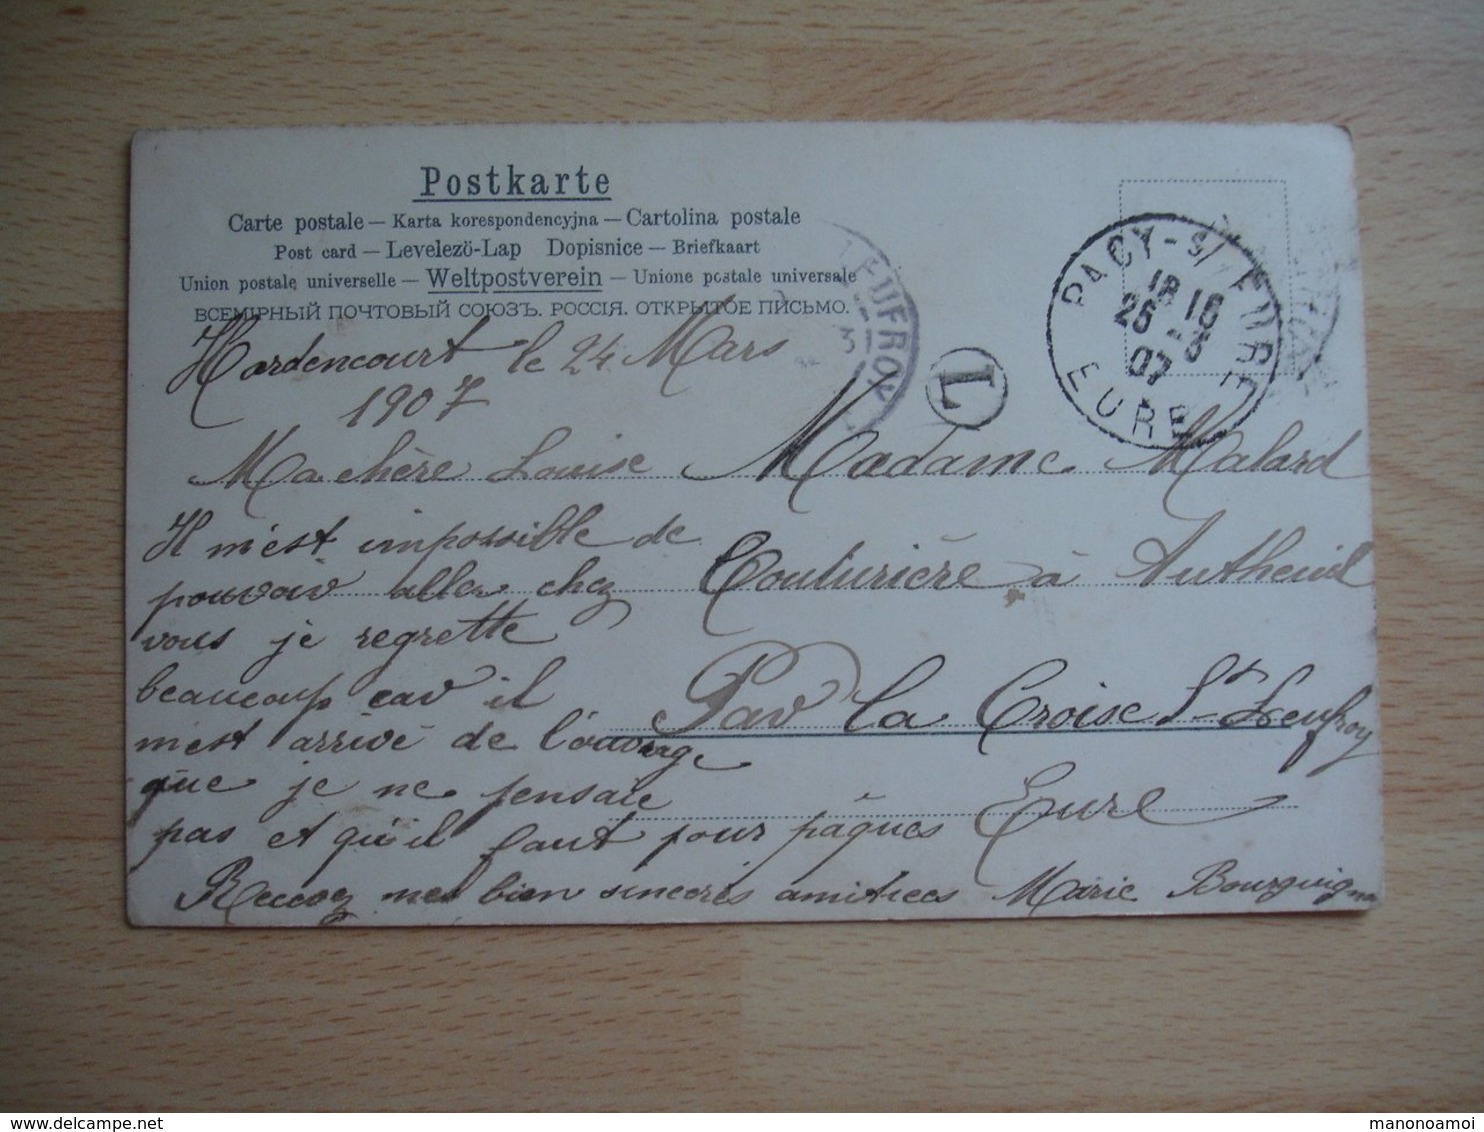 Postkarte
Carte postale – Karta korespondencyjna – Cartolina postale
Post card – Levelező-Lap Dopisnice – Briefkaart
Union postale universelle – Weltpostverein – Unione postale universale
ВСЕМІРНЫЙ ПОЧТОВЫЙ СОЮЗЪ. РОССІЯ. ОТКРЫТОЕ ПИСЬМО.
LEUFROY
3
L
PACY-S/EURE
18 16
25 -3
07
EURE
Hardencourt le 24 Mars
1907
Ma chère Louise
Il m'est impossible de
pouvoir aller chez
vous je regrette
beaucoup car il
m'est arrivé de l'ouvrage
que je ne pensaie
pas et qu'il faut pour pâques
Recevez mes bien sincères amitiées Marie Bourguignon
Madame Malard
Couturière à Autheuil
Par la Croise St Leufroy
Eure
manonoamoi